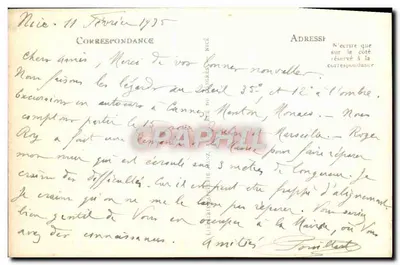 Nice. 11 Février 1935
CORRESPONDANCE
ADRESSE
N'écrire que
sur le côté
réservé à la
correspondance
Chers amis, Merci de vos bonnes nouvelles.
Nous faisons les lézards au soleil 35°, et 12° à l'ombre.
Excursions en autocars à Cannes, Menton, Monaco. - Nous
comptons partir le 15 Marseille. - Roger
Roy a fait une pour faire réparer
mon mur qui est écroulé sur 3 mètres de longueur. Je
crains des difficultés, car il est frappé d'alignement.
Je crains qu'on ne me le laisse pas réparer. Vous seriez
bien gentil de vous en occuper à la Mairie, où vous
avez des connaissances. Amitiés
PHILATELIE